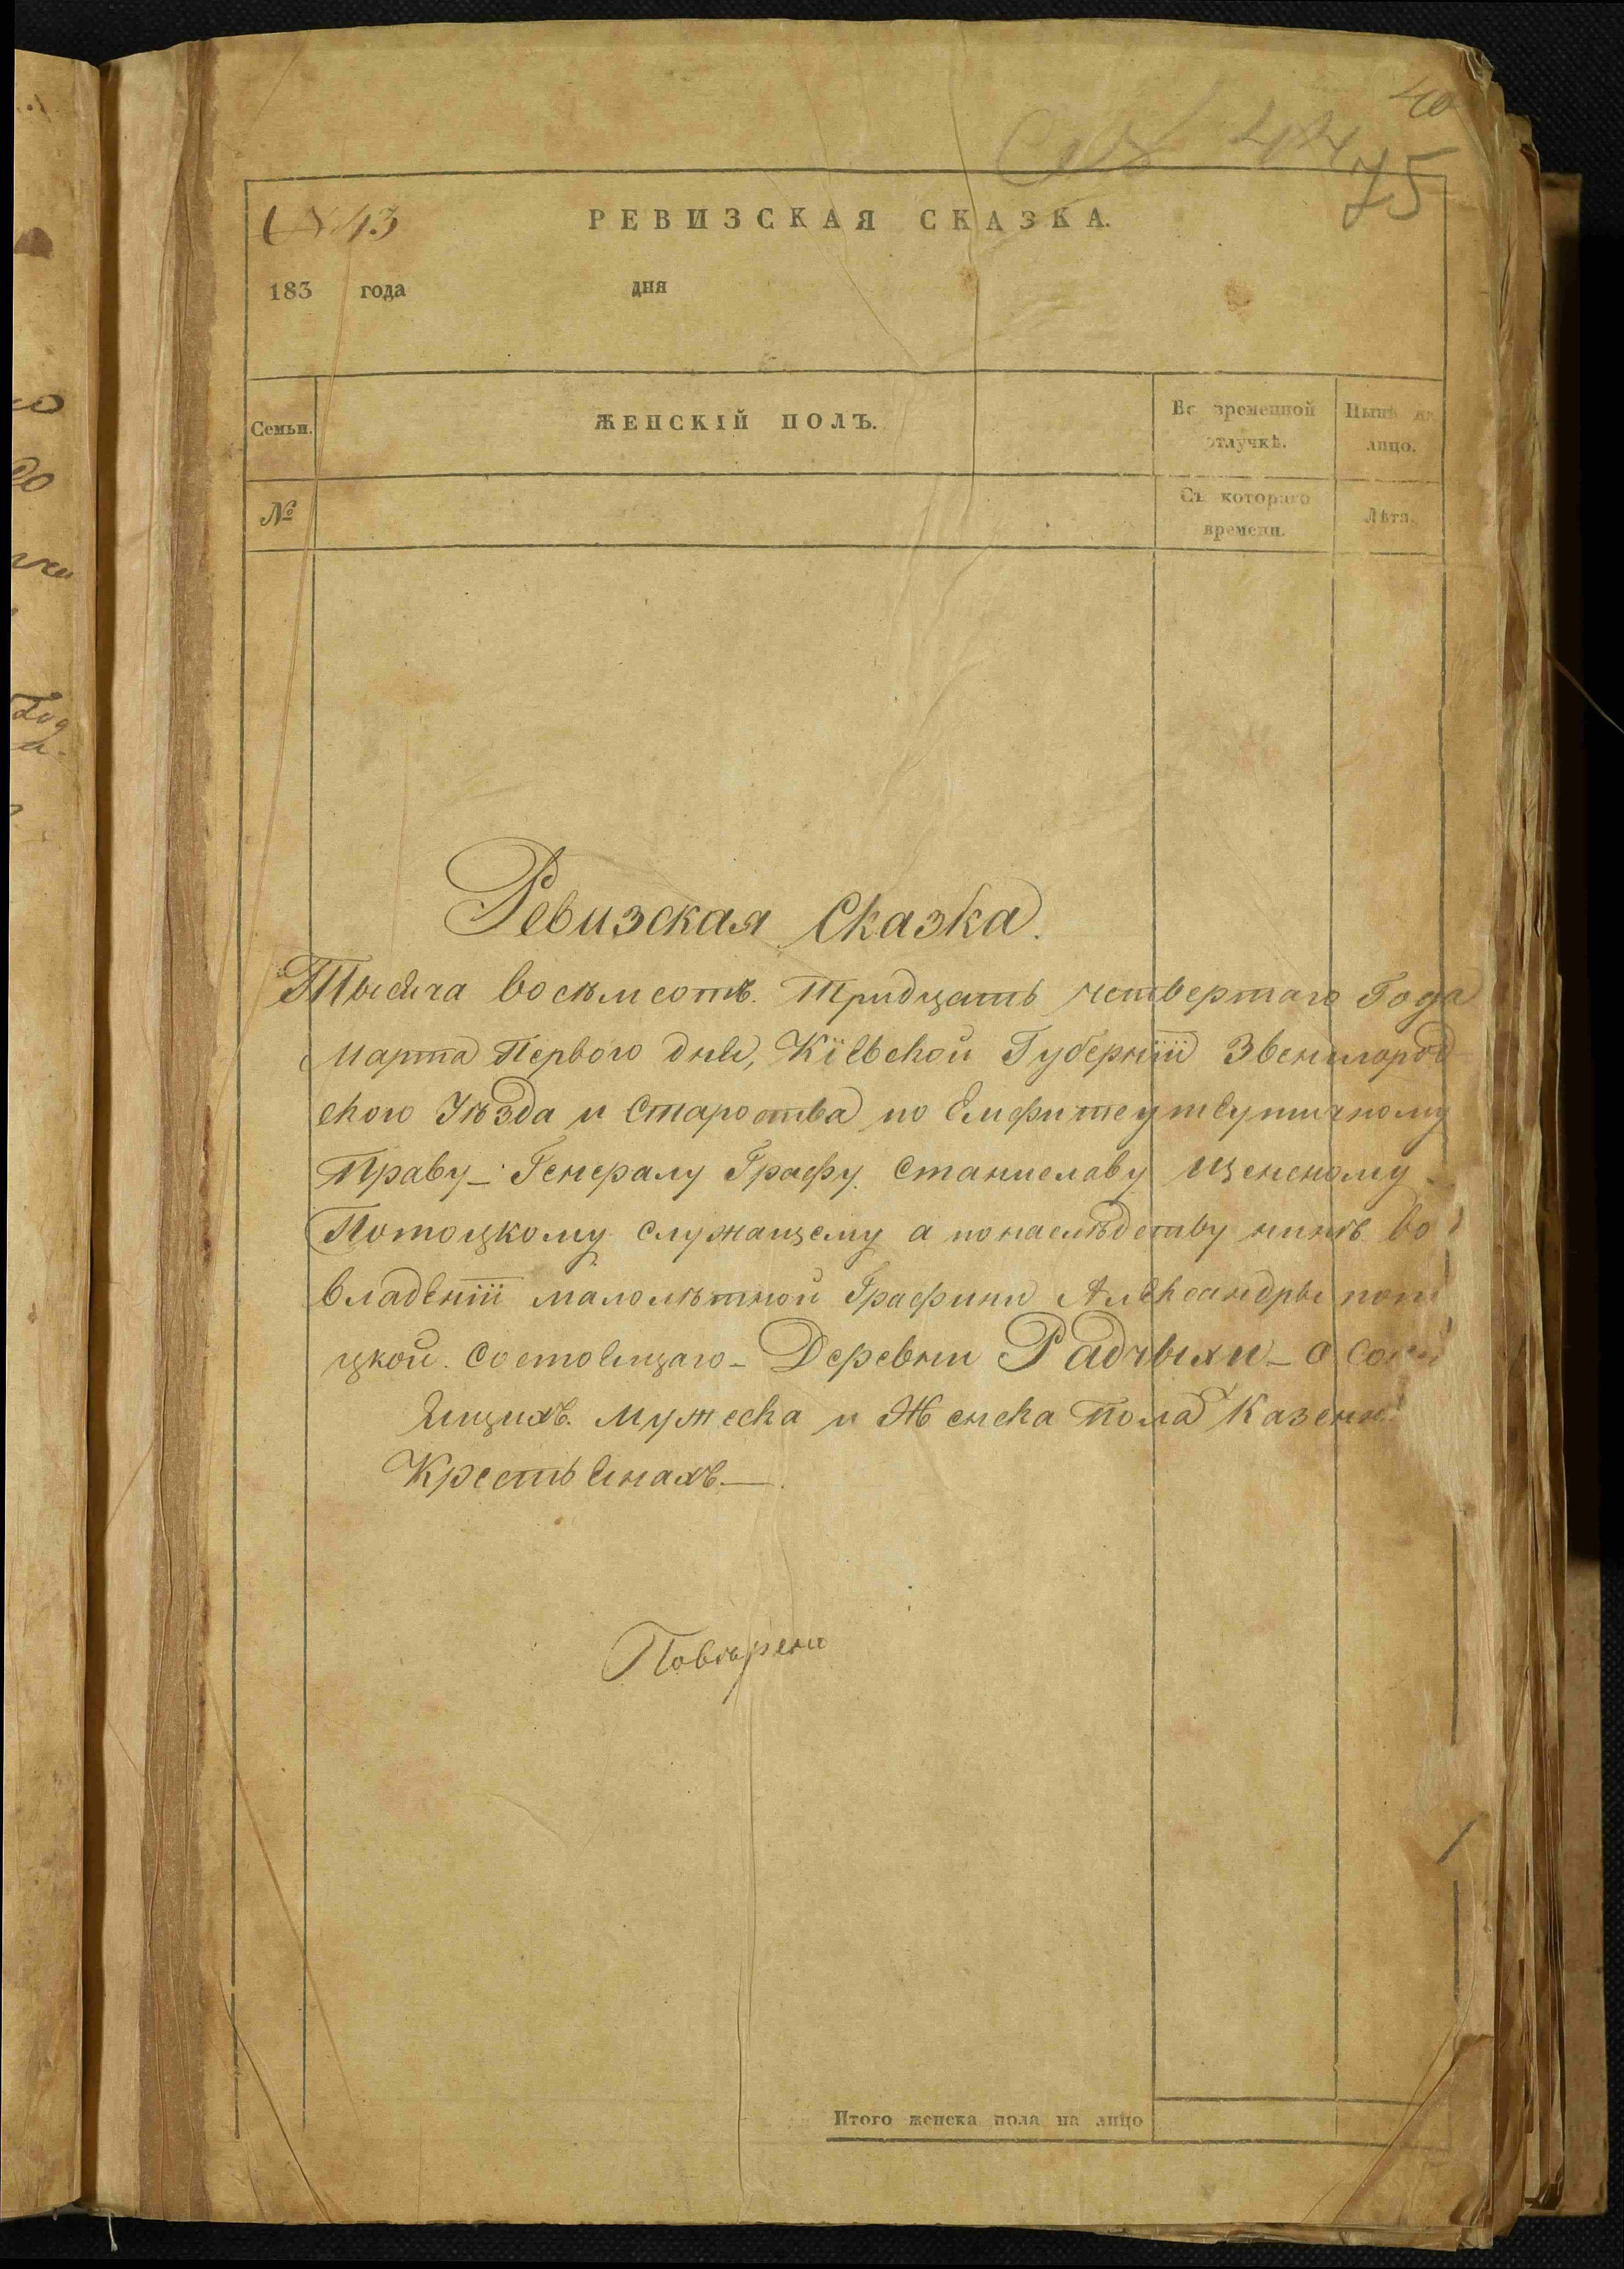 40
75
№ 43
РЕВИЗСКАЯ СКАЗКА.
183 года дня
Семьи. ЖЕНСКІЙ ПОЛЪ. Во временной отлучкѣ. Нынѣ на лицо.
№ Съ котораго времени. Лѣта.
Ревизская Сказка.
Тысяча восѣмсотъ Тридцать четвертаго Года
Марта Первого дня, Кіевской Губерніи Звенигород
ского Уѣзда и Староства по Емфитеутеутичному
Праву - Генералу Графу Станиславу Щенсному
Потоцкому служащему а понаслѣдству нинѣ во
владеніи малолѣтной Графини Александры пото
цкой. состоящаго - Деревни Радчыхи - о состо
ящихъ мужеска и Женска Пола Казенн
Крестьянахъ —.
Повѣрени
Итого женска пола на лицо